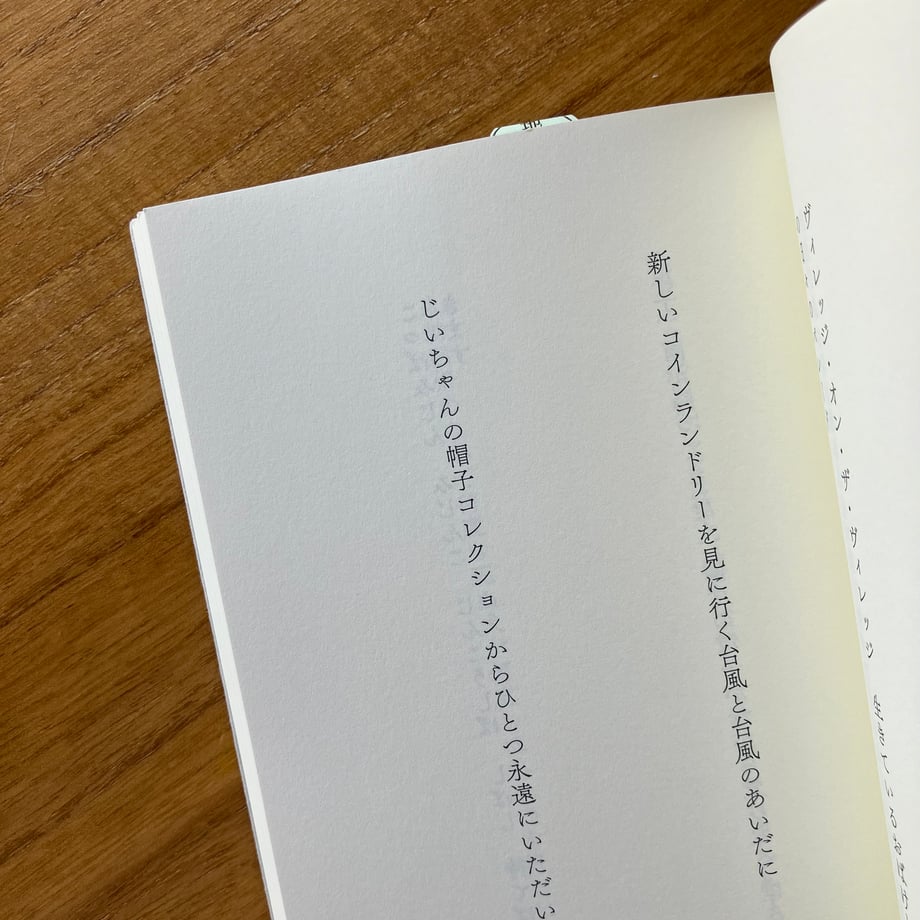 ヴィレッジ・オン・ザ・ヴィレッジ 生きているおば
新しいコインランドリーを見に行く台風と台風のあいだに
じいちゃんの帽子コレクションからひとつ永遠にいただい